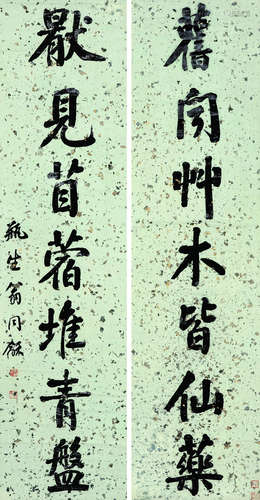 舊闻艸木皆仙藥
厭見苜蓿堆青盤
瓶生翁同龢